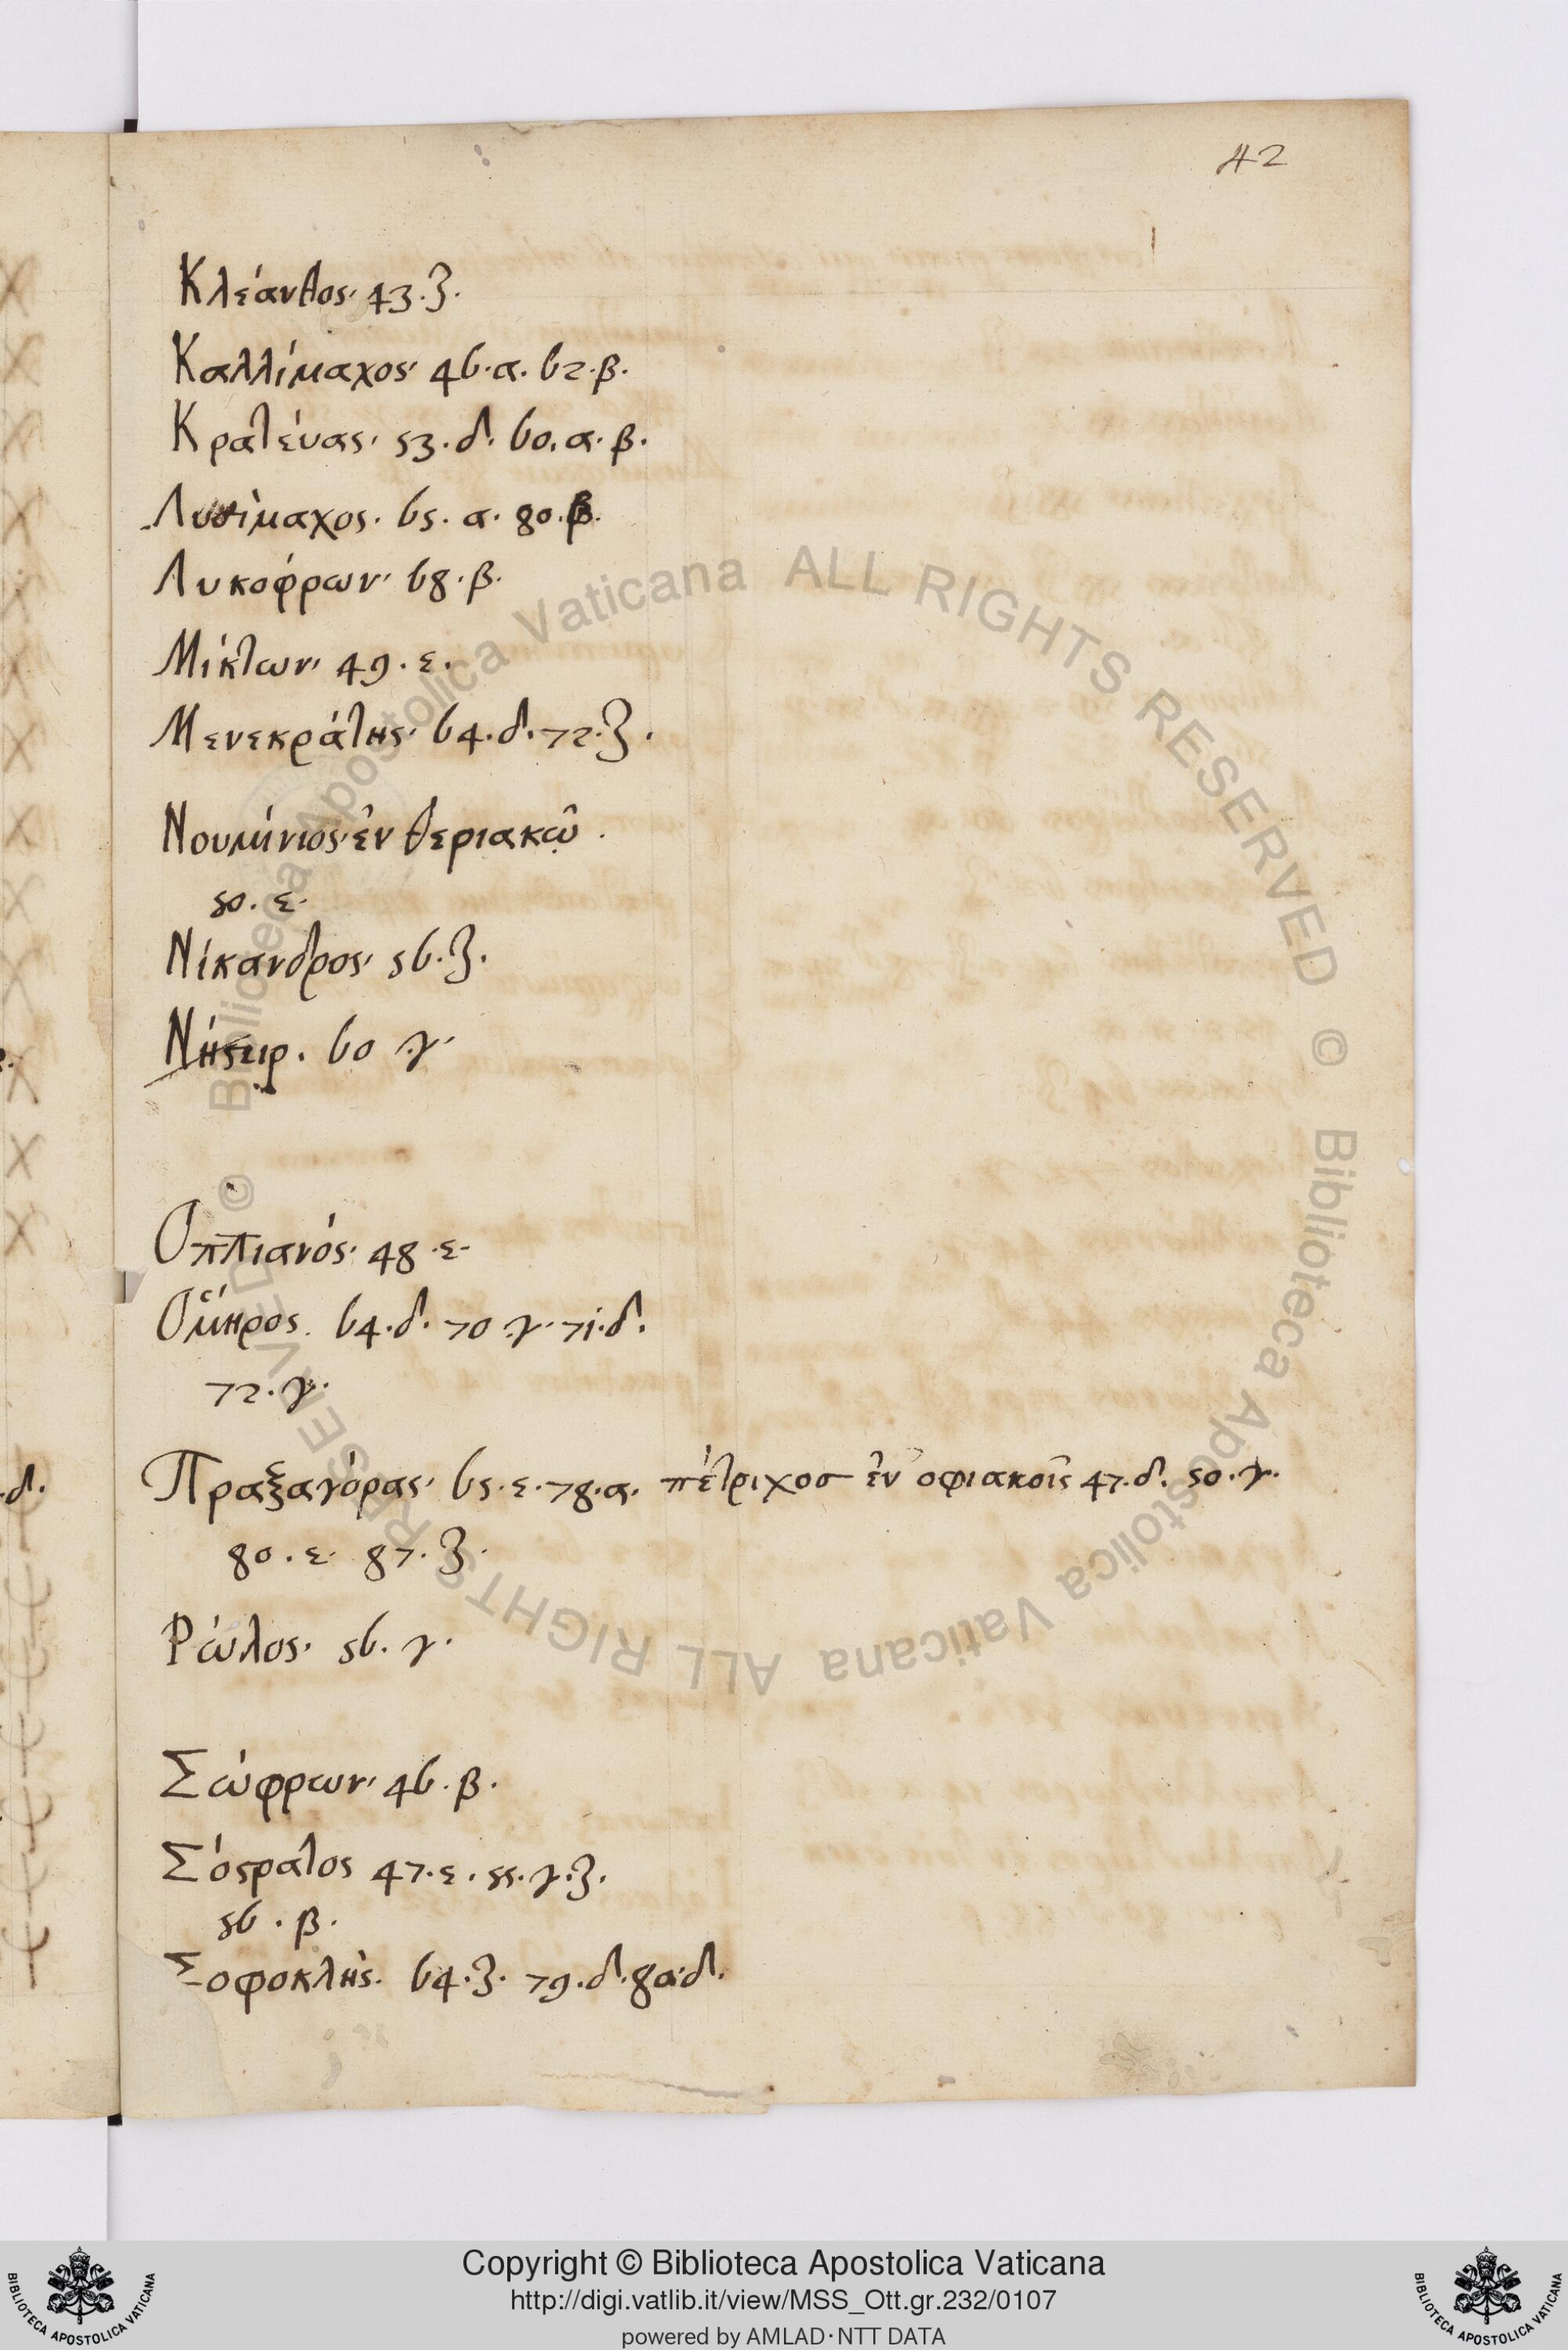 42
Κλέανθος· 43.ζ.
Καλλίμαχος· 46.α. 62.β.
Κρατέυας· 53.δ. 60.α.β.
Λυσίμαχος. 65. α. 80.β.
Λυκοφρων· 68.β.
Μίκτων· 49.ε.
Μενεκράτης· 64.δ. 72.ζ.
Νουμήνιος· ἐν θεριακῶ.
50. ε.
Νίκανδρος· 56.ζ.
60 γ.
Οππιανός· 48.ε.
Ὅμηρος. 64.δ. 70 γ. 71.δ.
72.γ.
Πραξαγόρας· 65.ε. 78.α. πέτριχοσ ἐν οφιακοῖς 47.δ. 50.γ.
80.ε. 87.ζ.
Ρώλος. 56.γ.
Σώφρων· 46.β.
Σόςρατος 47.ε. 55.γ.ζ.
56.β.
Σοφοκλῆς. 64.ζ. 79.δ.
Biblioteca Apostolica Vaticana ALL RIGHTS RESERVED ©
Biblioteca Apostolica Vaticana ALL RIGHTS RESERVED ©
Copyright © Biblioteca Apostolica Vaticana
http://digi.vatlib.it/view/MSS_Ott.gr.232/0107
powered by AMLAD·NTT DATA
BIBLIOTECA APOSTOLICA VATICANA
BIBLIOTECA APOSTOLICA VATICANA